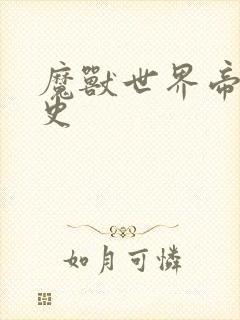 魔獸世界帝
史
如月可憐